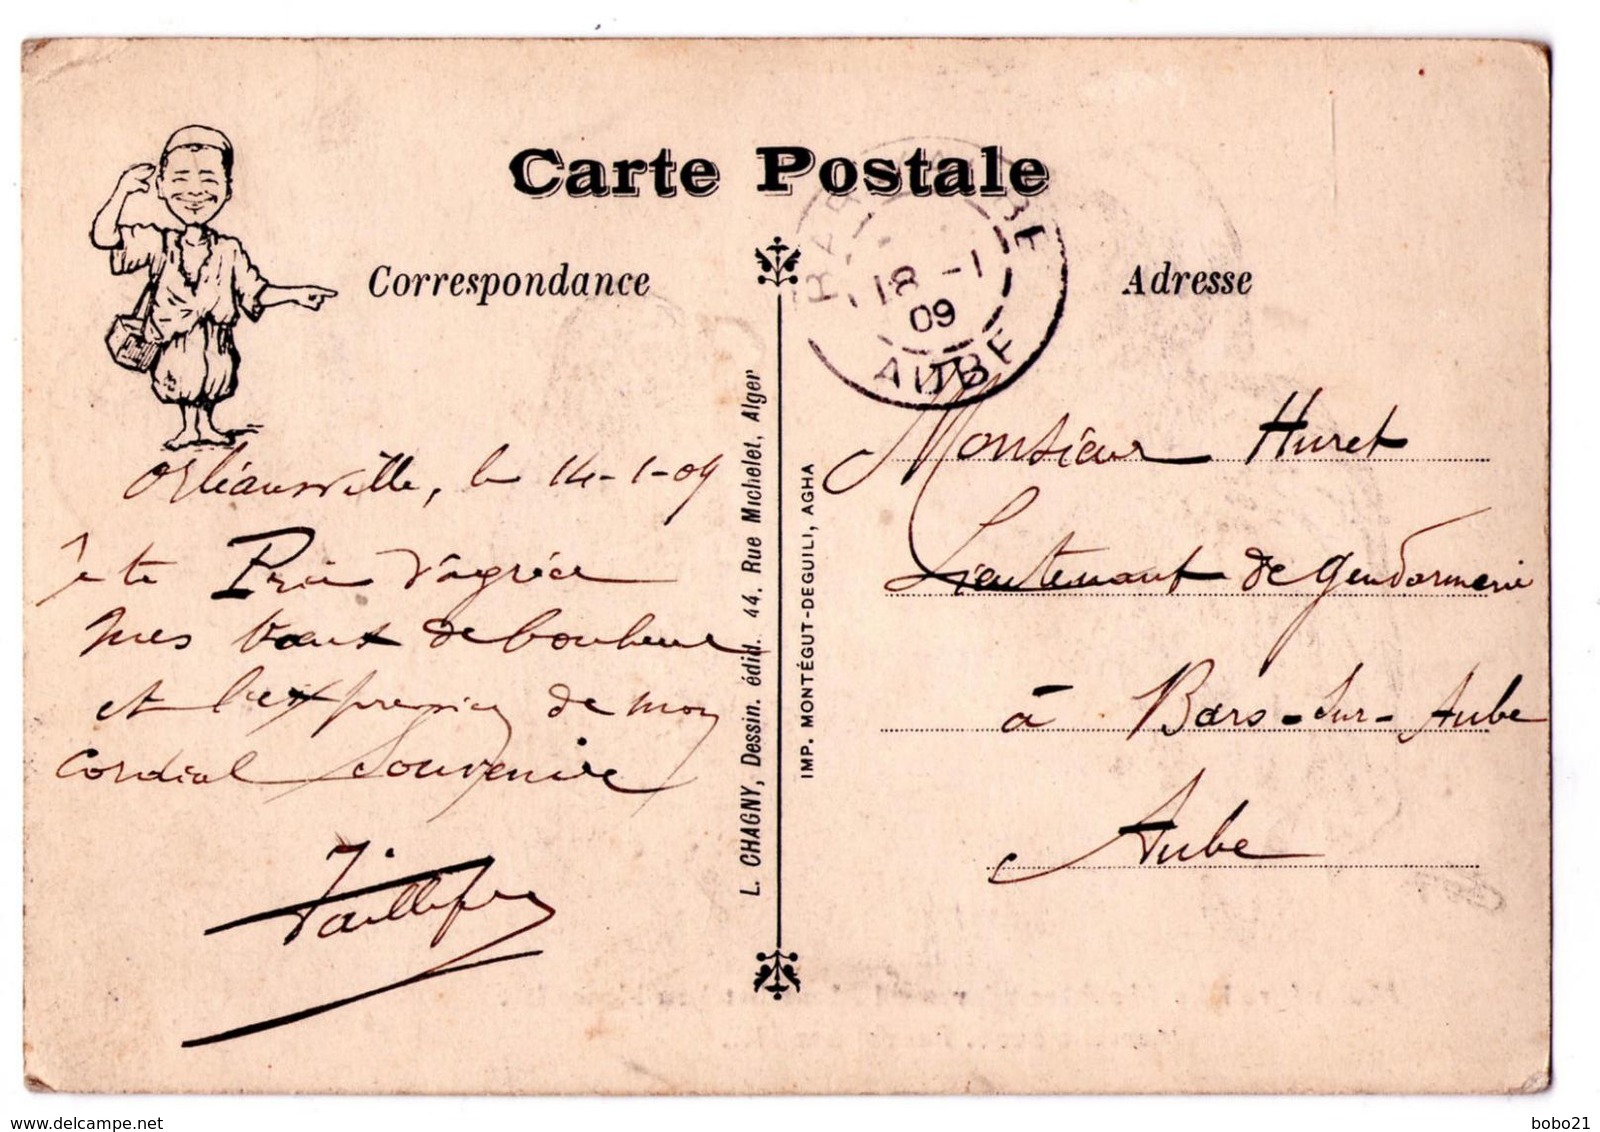 Carte Postale
Correspondance
Orléansville, le 14-1-09
Je te Prie d'agréer
mes vœux de bonheur
et l'expression de mon
Cordial Souvenir
L. CHAGNY, Dessin. édit. 44, Rue Michelet, Alger
IMP. MONTÉGUT-DEGUILI, AGHA
BAR-S-AUBE
18 -1
09
AUBE
Adresse
Monsieur Huret
Lieutenant de Gendarmerie
à Bars-sur-Aube
Aube
delcampe.net
bobo21